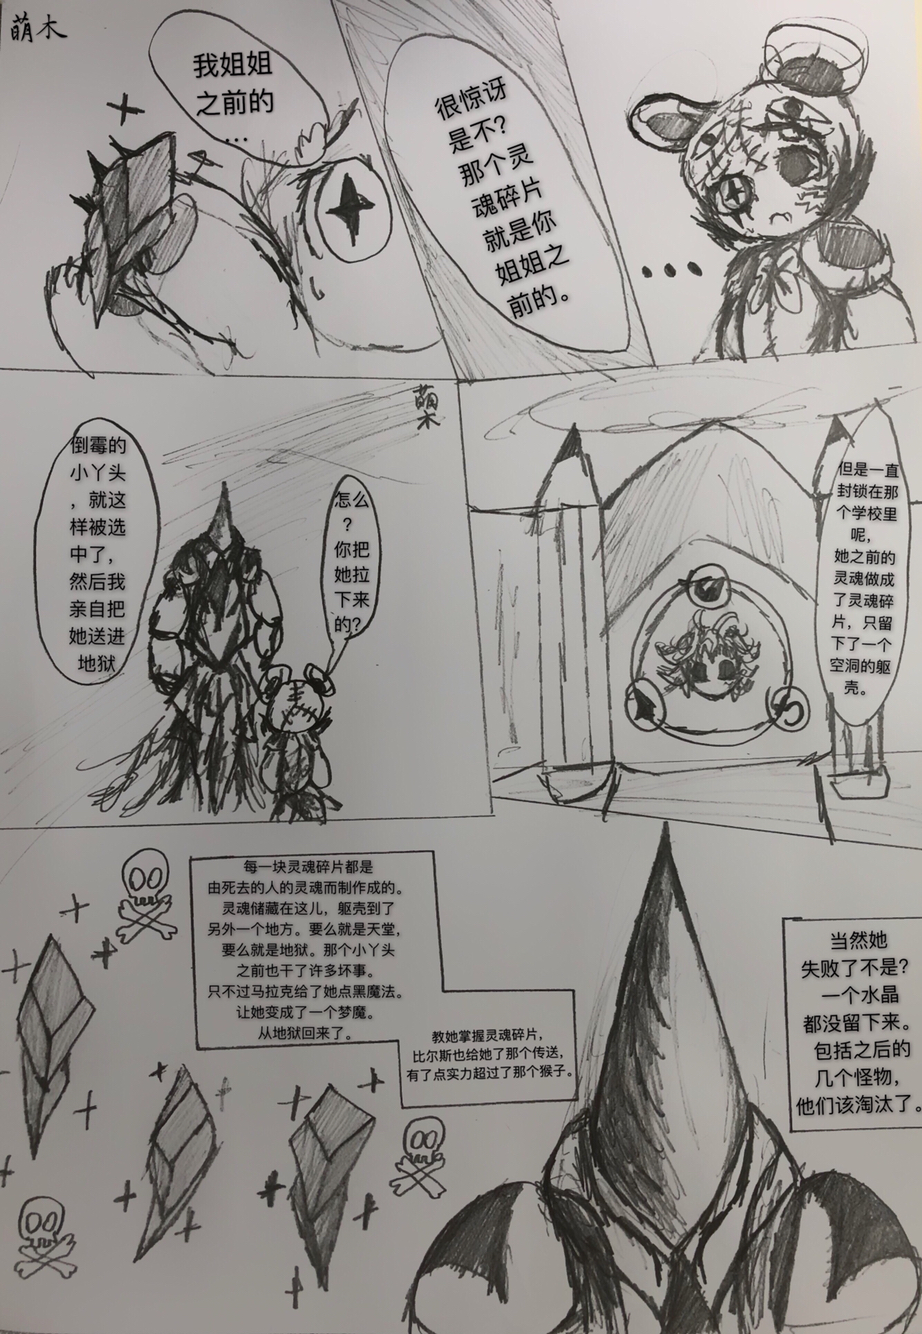 萌木
我姐姐
之前的
...
很惊讶
是不?
那个灵
魂碎片
就是你
姐姐之
前的。
萌木
倒霉的
小丫头
，就这
样被选
中了，
然后我
亲自把
她送进
地狱
怎么
?
你把
她拉
下来
的?
但是一直
封锁在那
个学校里
呢，
她之前的
灵魂做成
了灵魂碎
片，只留
下了一个
空洞的躯
壳。
每一块灵魂碎片都是
由死去的人的灵魂而制作成的。
灵魂储藏在这儿，躯壳到了
另外一个地方。要么就是天堂，
要么就是地狱。那个小丫头
之前也干了许多坏事。
只不过马拉克给了她点黑魔法。
让她变成了一个梦魔。
从地狱回来了。
教她掌握灵魂碎片，
比尔斯也给她了那个传送，
有了点实力超过了那个猴子。
当然她
失败了不是?
一个水晶
都没留下来。
包括之后的
几个怪物，
他们该淘汰了。